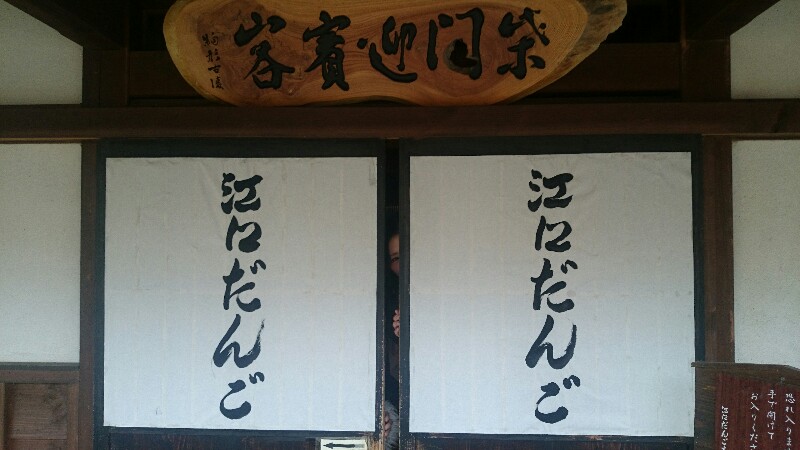 柴門迎賓客
江口だんご
江口だんご
恐れ入りま
手で開けて
お入りくださ
江口だんご